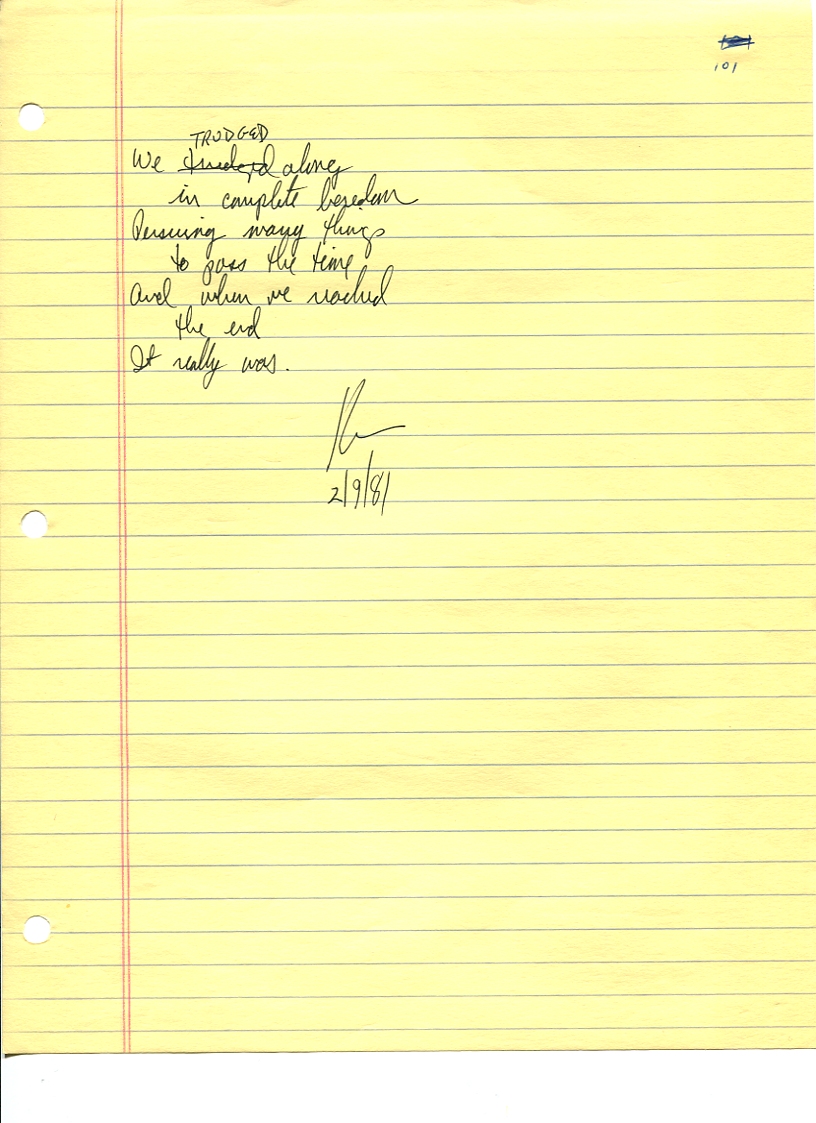 101
TRUDGED
We trudged along
in complete boredom
Persuing many things
to pass the time
And when we reached
the end
It really was.
2/9/81